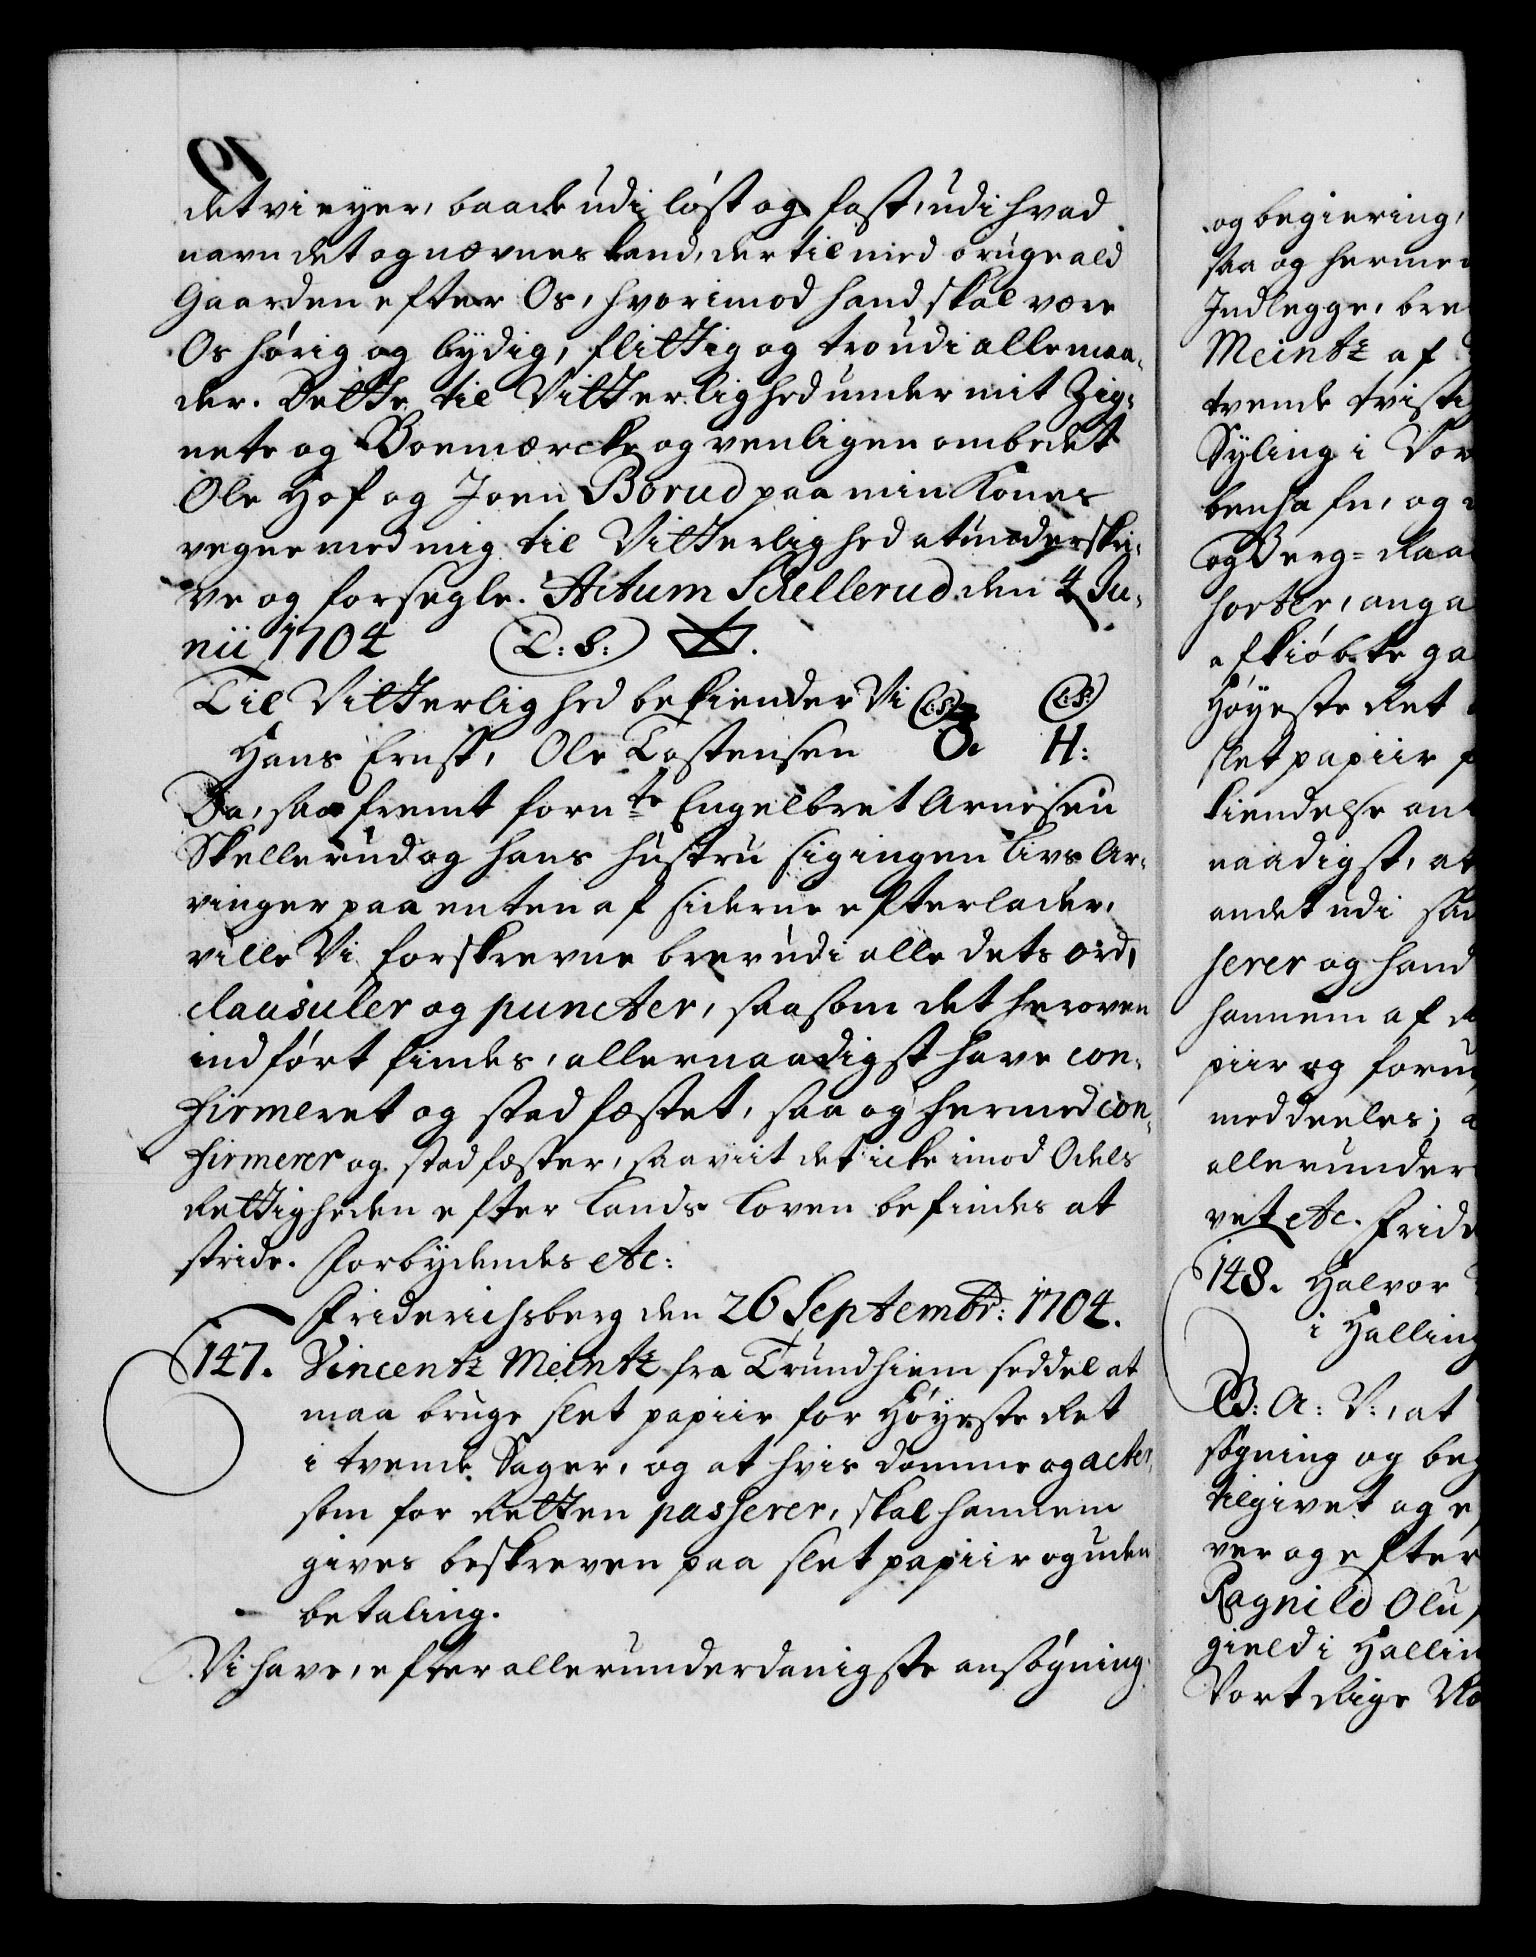 det vi eyer, baade udi løst og fast, udi hvad
navn det og nævnes kand, der til med bruge ald
Gaarden efter Os, hvorimod hand skal være
Os hørig og lydig, flittig og tro udi alle maa-
der. Dette til Vitterlighed under mit Zig-
nete og Boemærcke og venligen ombedet
Ole Hof og Joen Borud paa min Kones
vegne med mig til Vitterlighed at underskri-
ve og forsegle. Actum Schellerud den 4 Ju-
nii 1704 (L:S:)
Til Vitterlighed bekiender Vi (L:S:) (L:S:)
Hans Ernst, Ole Tostensen O. H:
Da, saafremt fornte Engelbret Arnesen
Skellerud og hans hustru sig ingen Livs Ar-
vinger paa enten af siderne efterlader,
ville Vi forskrevne brev udi alle dets ord,
clausuler og puncter, saasom det heroven
indført findes, allernaadigst have con-
firmeret og stadfæstet, saa og hermed con-
firmerer og stadfæster, saaviit det icke imod Odels
Rettigheden efter Lands Loven befindes at
stride. Forbydendes etc:
Friderichsberg den 26 Septembr: 1704.
147. Vincentz Meintz fra Trundhiem seddel at
maa bruge slet papiir for Høyeste Ret
i tvende Sager, og at hvis domme og acter,
som for Retten passerer, skal hannem
gives beskreven paa slet papiir og uden
betaling.
Vi have, efter allerunderdanigste ansøgning
og begiering,
saa og hermed
Indlegge, bre
Meintz af
tvende tvisti
Syling i Vor
benhafn, og
og Berg-Raa
horter, anga
afkiøbte ga
Høyeste Ret
slet papiir
kiendelse an
naadigst, at
andet udi saa
serer og hand
hannem af
piir og foru
meddeeles;
allerunder
vet etc. Fride
148. Halvor
i Halling
G: A: V:, at
søgning og beg
tilgivet og e
ver og efter
Ragnild Olu
gield i Hallin
Vort Rige No